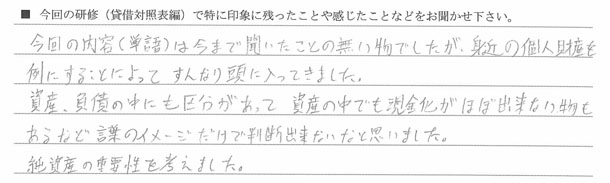 ■ 今回の研修（貸借対照表編）で特に印象に残ったことや感じたことなどをお聞かせ下さい。
今回の内容（単語）は今まで聞いたことの無い物でしたが、身近の個人財産を
例にすることによって すんなり頭に入ってきました。
資産、負債の中にも区分があって 資産の中でも現金化がほぼ出来ない物も
あるなど 言葉のイメージだけで判断出来ないなと思いました。
純資産の重要性を考えました。